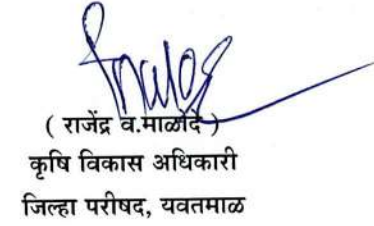 ( राजेंद्र व.माळोदे )
कृषि विकास अधिकारी
जिल्हा परीषद, यवतमाळ